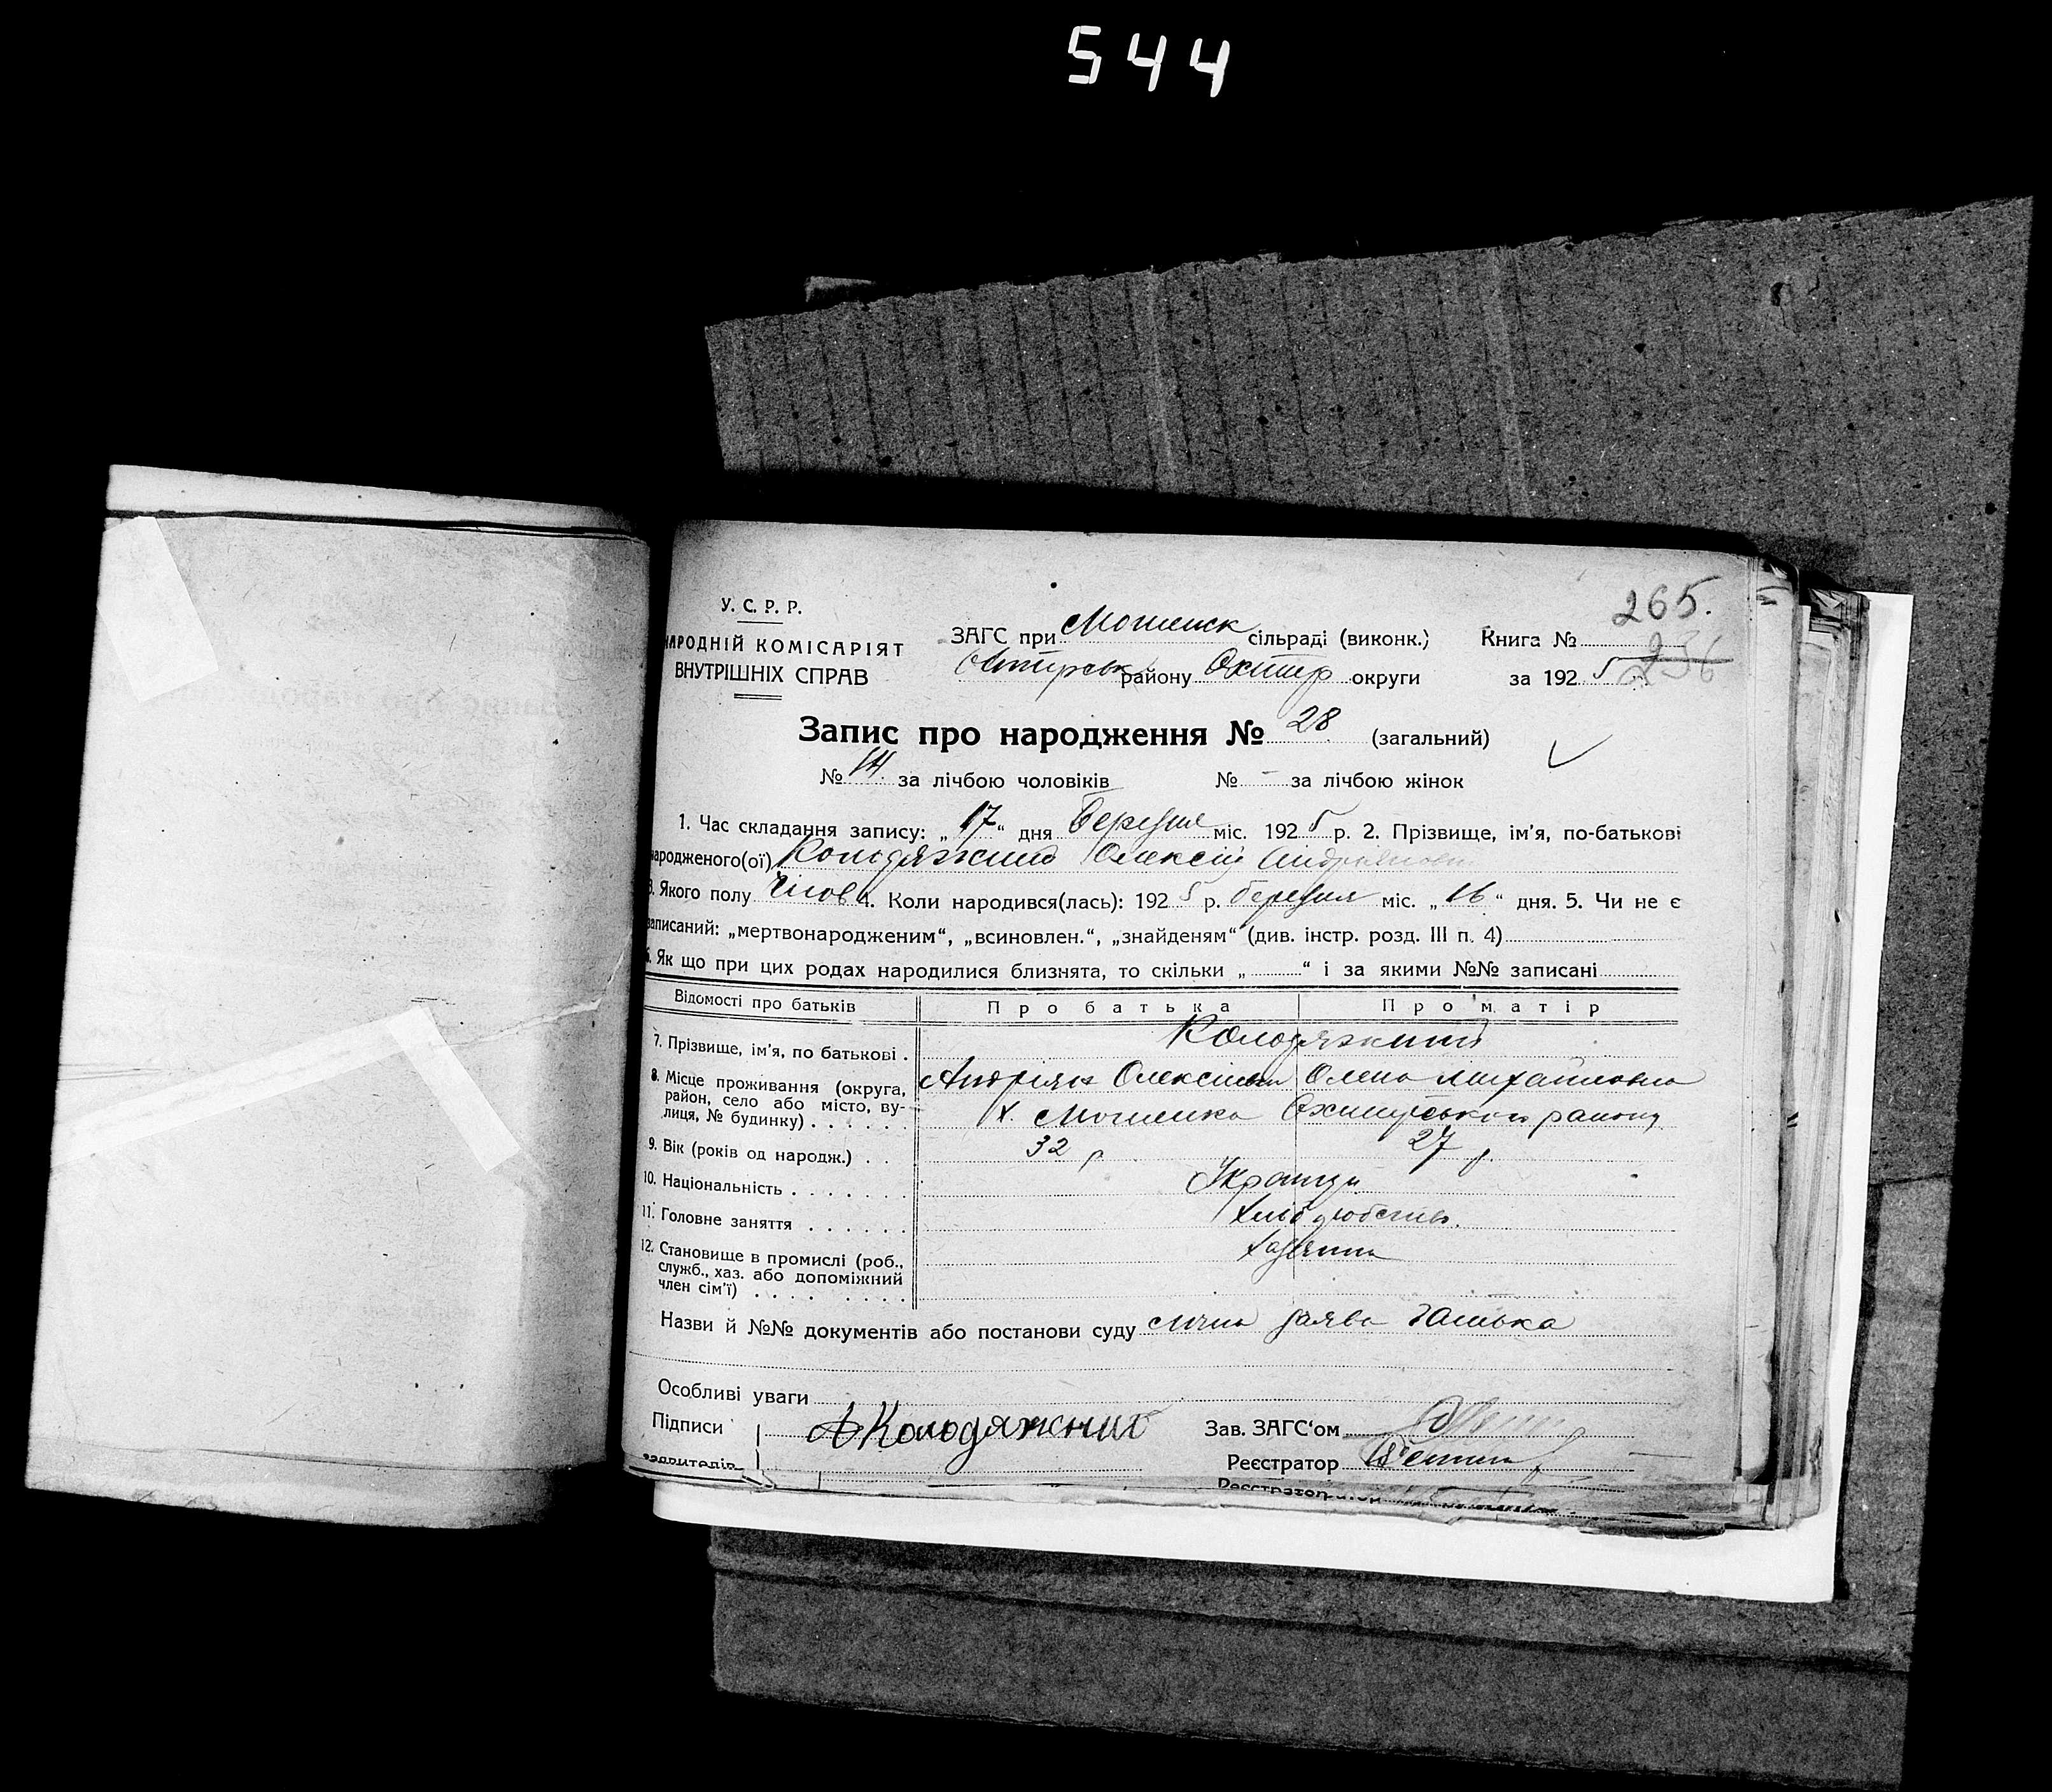 544
265.
236
У. С. Р. Р.
НАРОДНІЙ КОМІСАРІЯТ
ВНУТРІШНІХ СПРАВ
ЗАГС при Мошенск сільраді (виконк.) Книга №
району Охтир округи за 1925
Запис про народження № 28 (загальний)
№ 14 за лічбою чоловіків № - за лічбою жінок
1. Час складання запису: „17“ дня Березня міс. 1925 р. 2. Прізвище, ім’я, по-батькові
народженого(ої) Колодяжний Олексій Андріянови
3. Якого полу Чолов 4. Коли народився(лась): 1925 р. березня міс. „16“ дня. 5. Чи не є
записаний: „мертвонародженим“, „всиновлен.“, „знайденям“ (див. інстр. розд. III п. 4)
6. Як що при цих родах народилися близнята, то скільки „ “ і за якими №№ записані
Відомості про батьків Про батька Про матір
7. Прізвище, ім’я, по батькові . Колодяжний
Андріян Олексієвич Олена Михайловна
8. Місце проживання (округа, район, село або місто, вулиця, № будинку) . . . . . . х. Мошенка Охтирського району
9. Вік (років од народж.) . . 32 р 27 р.
10. Національність . . . . . . . Українці
11. Головне заняття . . . . . . хліборобство.
12. Становище в промислі (роб., служб., хаз. або допоміжний член сім’ї) . . . . . . . . Хазяїни
Назви й №№ документів або постанови суду лична заява батька
Особливі уваги
Підписи А Колодяжний Зав. ЗАГС‘ом
заявителів Реєстратор
Реєстратор